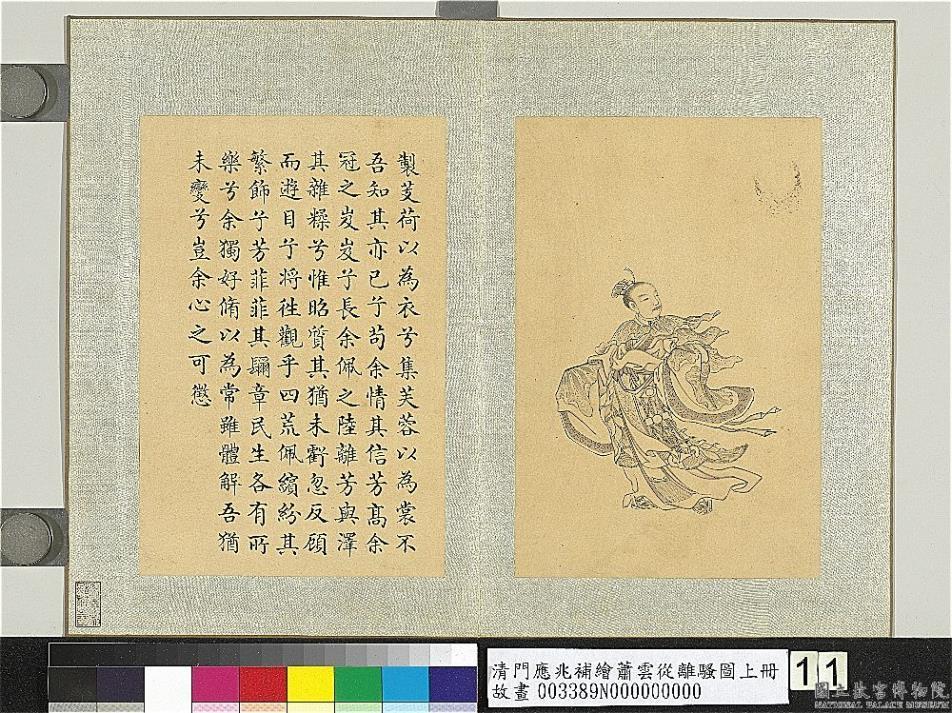 製芰荷以為衣兮集芙蓉以為裳不
吾知其亦已兮苟余情其信芳髙余
冠之岌岌兮長余佩之陸離芳與澤
其雜糅兮惟昭質其猶未虧忽反顧
而遊目兮將徃觀乎四荒佩繽紛其
繁飾兮芳菲菲其彌章民生各有所
樂兮余獨好脩以為常雖體解吾猶
未變兮豈余心之可懲
清門應兆補繪蕭雲從離騷圖上冊
故畫 003389N000000000
11
國立故宮博物院
NATIONAL PALACE MUSEUM